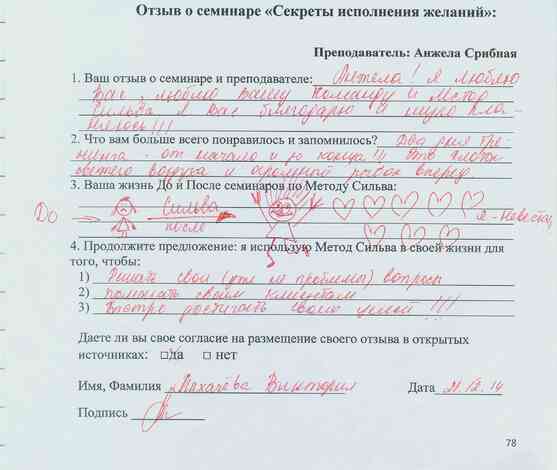 Отзыв о семинаре «Секреты исполнения желаний»:
Преподаватель: Анжела Срибная
1. Ваш отзыв о семинаре и преподавателе: Анжела! Я люблю
Вас, люблю Вашу команду и Метод
Сильва я Вас благодарю и низко кла-
няюсь!!!
2. Что вам больше всего понравилось и запомнилось? Два дня тре-
нинга - от начала и до конца!!! Это глоток
свежего воздуха и огромный рывок вперед
3. Ваша жизнь До и После семинаров по Методу Сильва:
До Сильва Я - Невеста,
после
4. Продолжите предложение: я использую Метод Сильва в своей жизни для
того, чтобы:
1) Решать свои (уже не проблемы) вопросы
2) помогать своим клиентам
3) Быстро достигать своих целей!!!
Даете ли вы свое согласие на размещение своего отзыва в открытых
источниках: □да □ нет
Имя, Фамилия Виктория Дата 21.12.14
Подпись
78